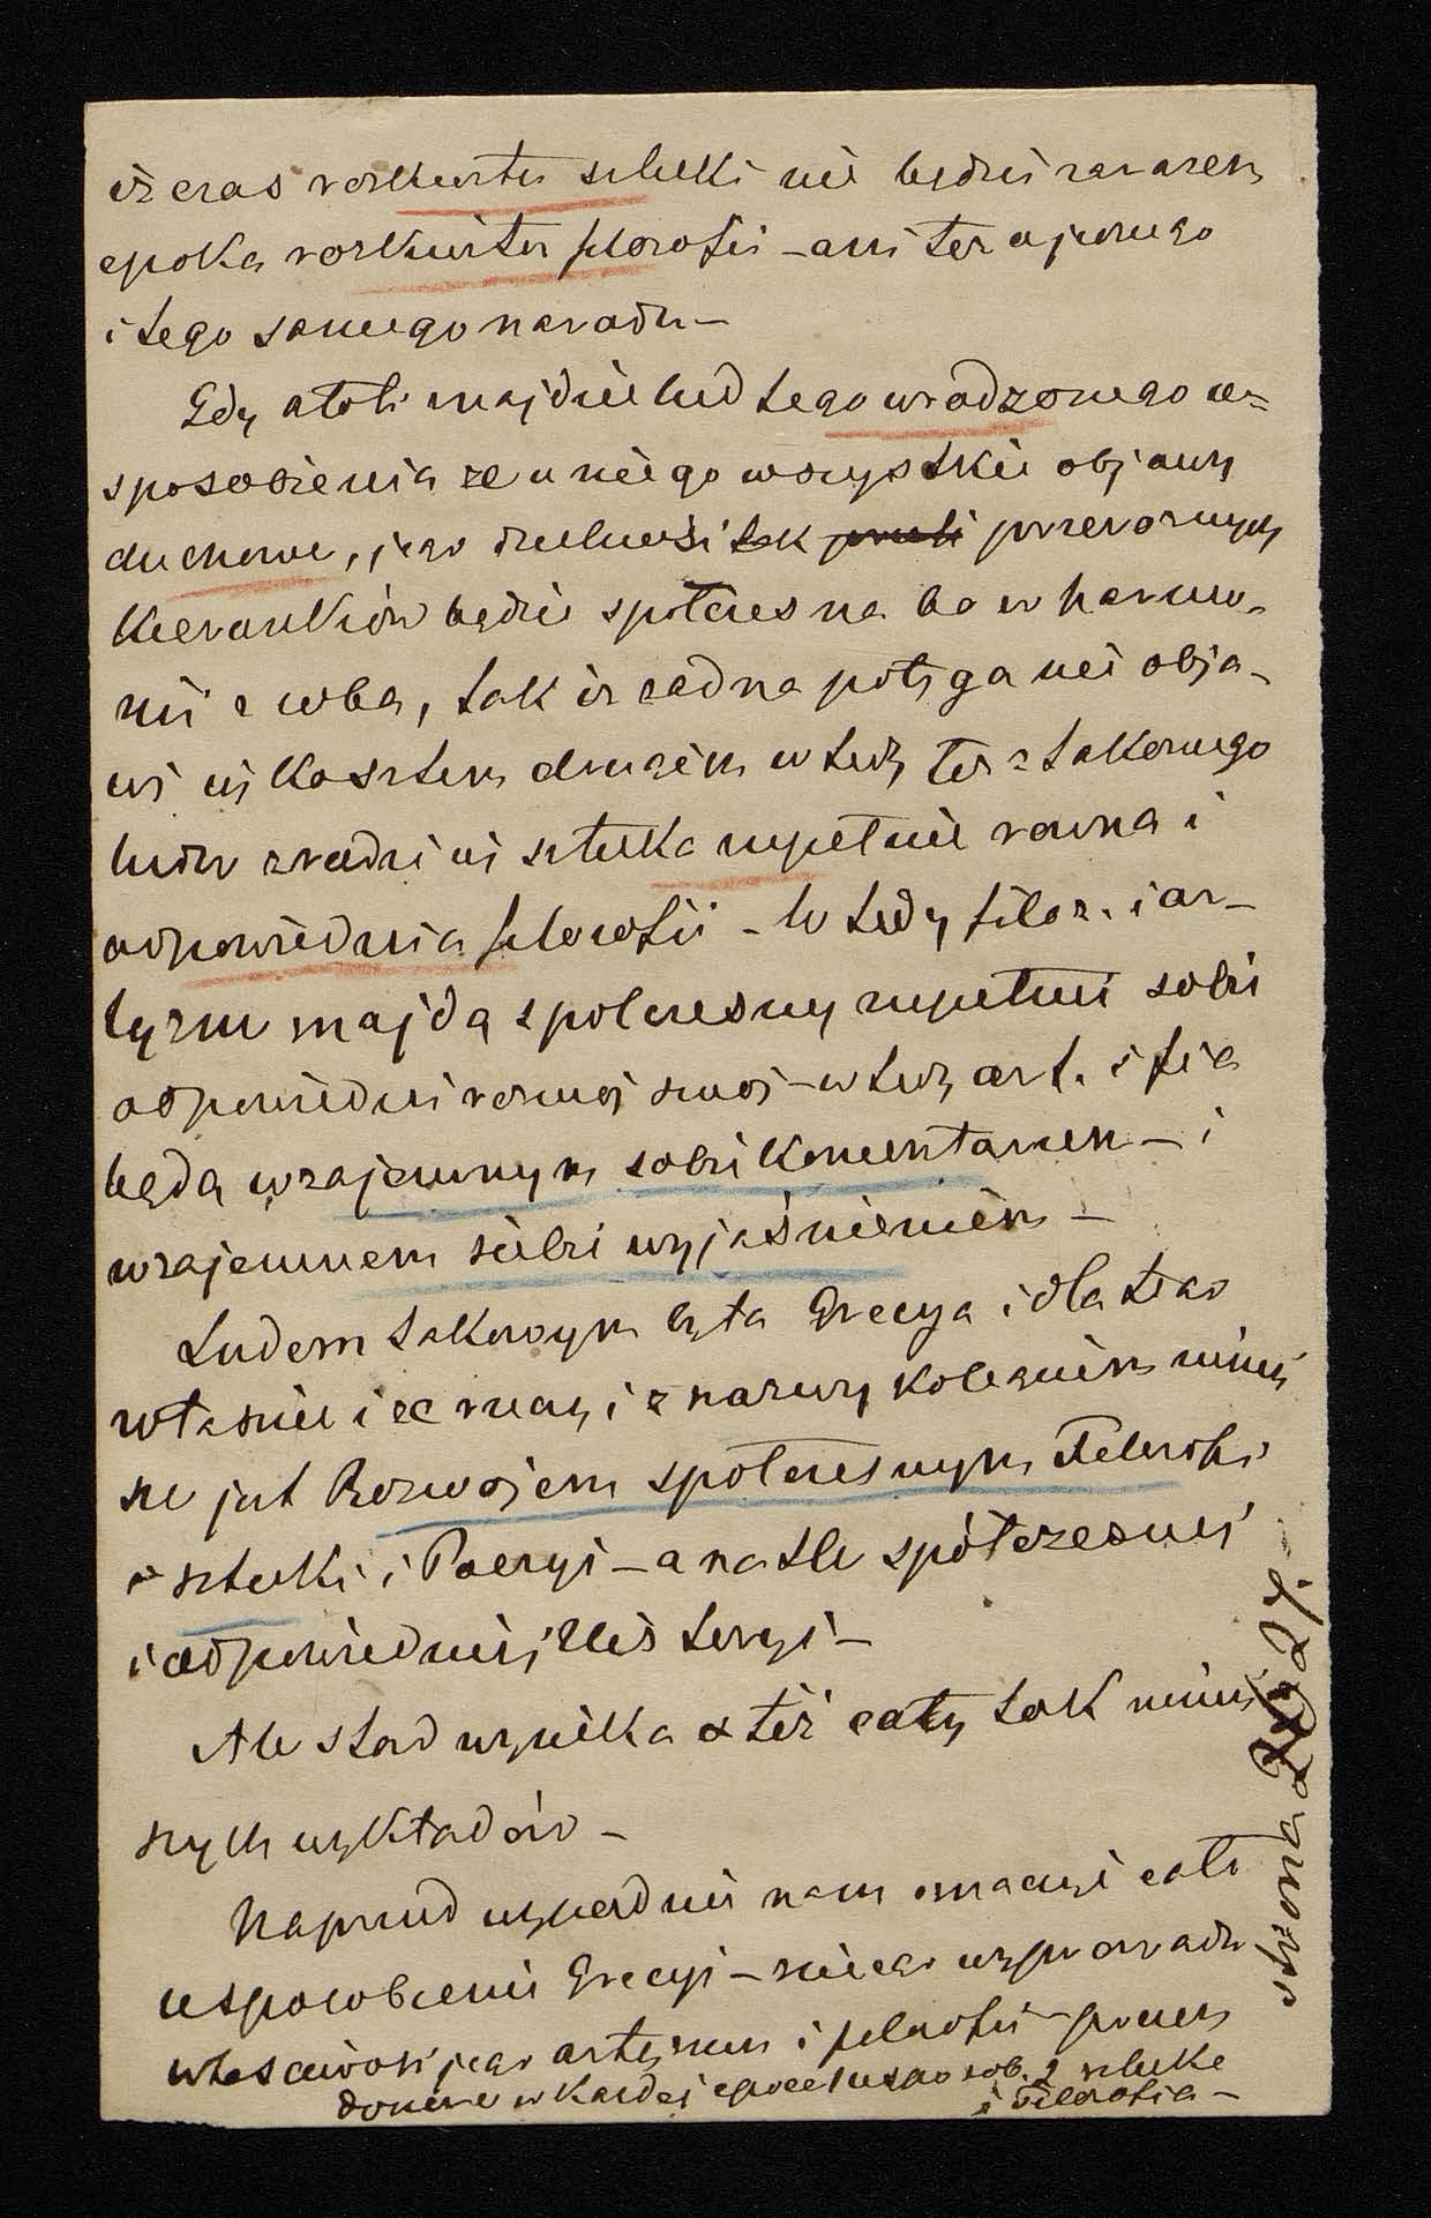 iż czas rozkwitu sztuki nie będzie zarazem
epoka rozkwitu filozofii – ani też u jednego
i tego samego narodu –
Gdy atoli znajdzie lud tego wrodzonego u=
sposobienia że u niego wszystkie objawy
duchowe, jego dzielności tak przeróżnych
kierunków będzie spółczesna bo w harmo-
nii z sobą, tak iż żadna potęga nie obja-
wi się kosztem drugiej wtedy też z takowego
ludu zrodzi się sztuka zupełnie równa i
odpowiednia filozofii – Wtedy filoz. i ar-
tyzm znajdą spółczesny zupełnie sobie
odpowiedni rozwój swój – wtedy art. i fia
będą wzajemnym sobie komentarzem – i
wzajemnem siebie wyjaśnieniem –
Ludem takowym była Grecya i dla tego
właśnie i rzeczą i z nazwy kolegium niniej
sze jest Rozwojem spółczesnym Filozofii
i sztuki i Poezyi – a na tle spółczesnej
i odpowiedniej Historyi –
Ale stąd wynika też cały tok niniej
szych wykładów –
Naprzód wypadnie nam oznaczyć całe
usposobienie Grecyi – z niego wyprowadzić
właściwość jego artyzmu i filozofii – potem
w każdej epoce usposob. sztukę
i Filozofią –
strona 27.